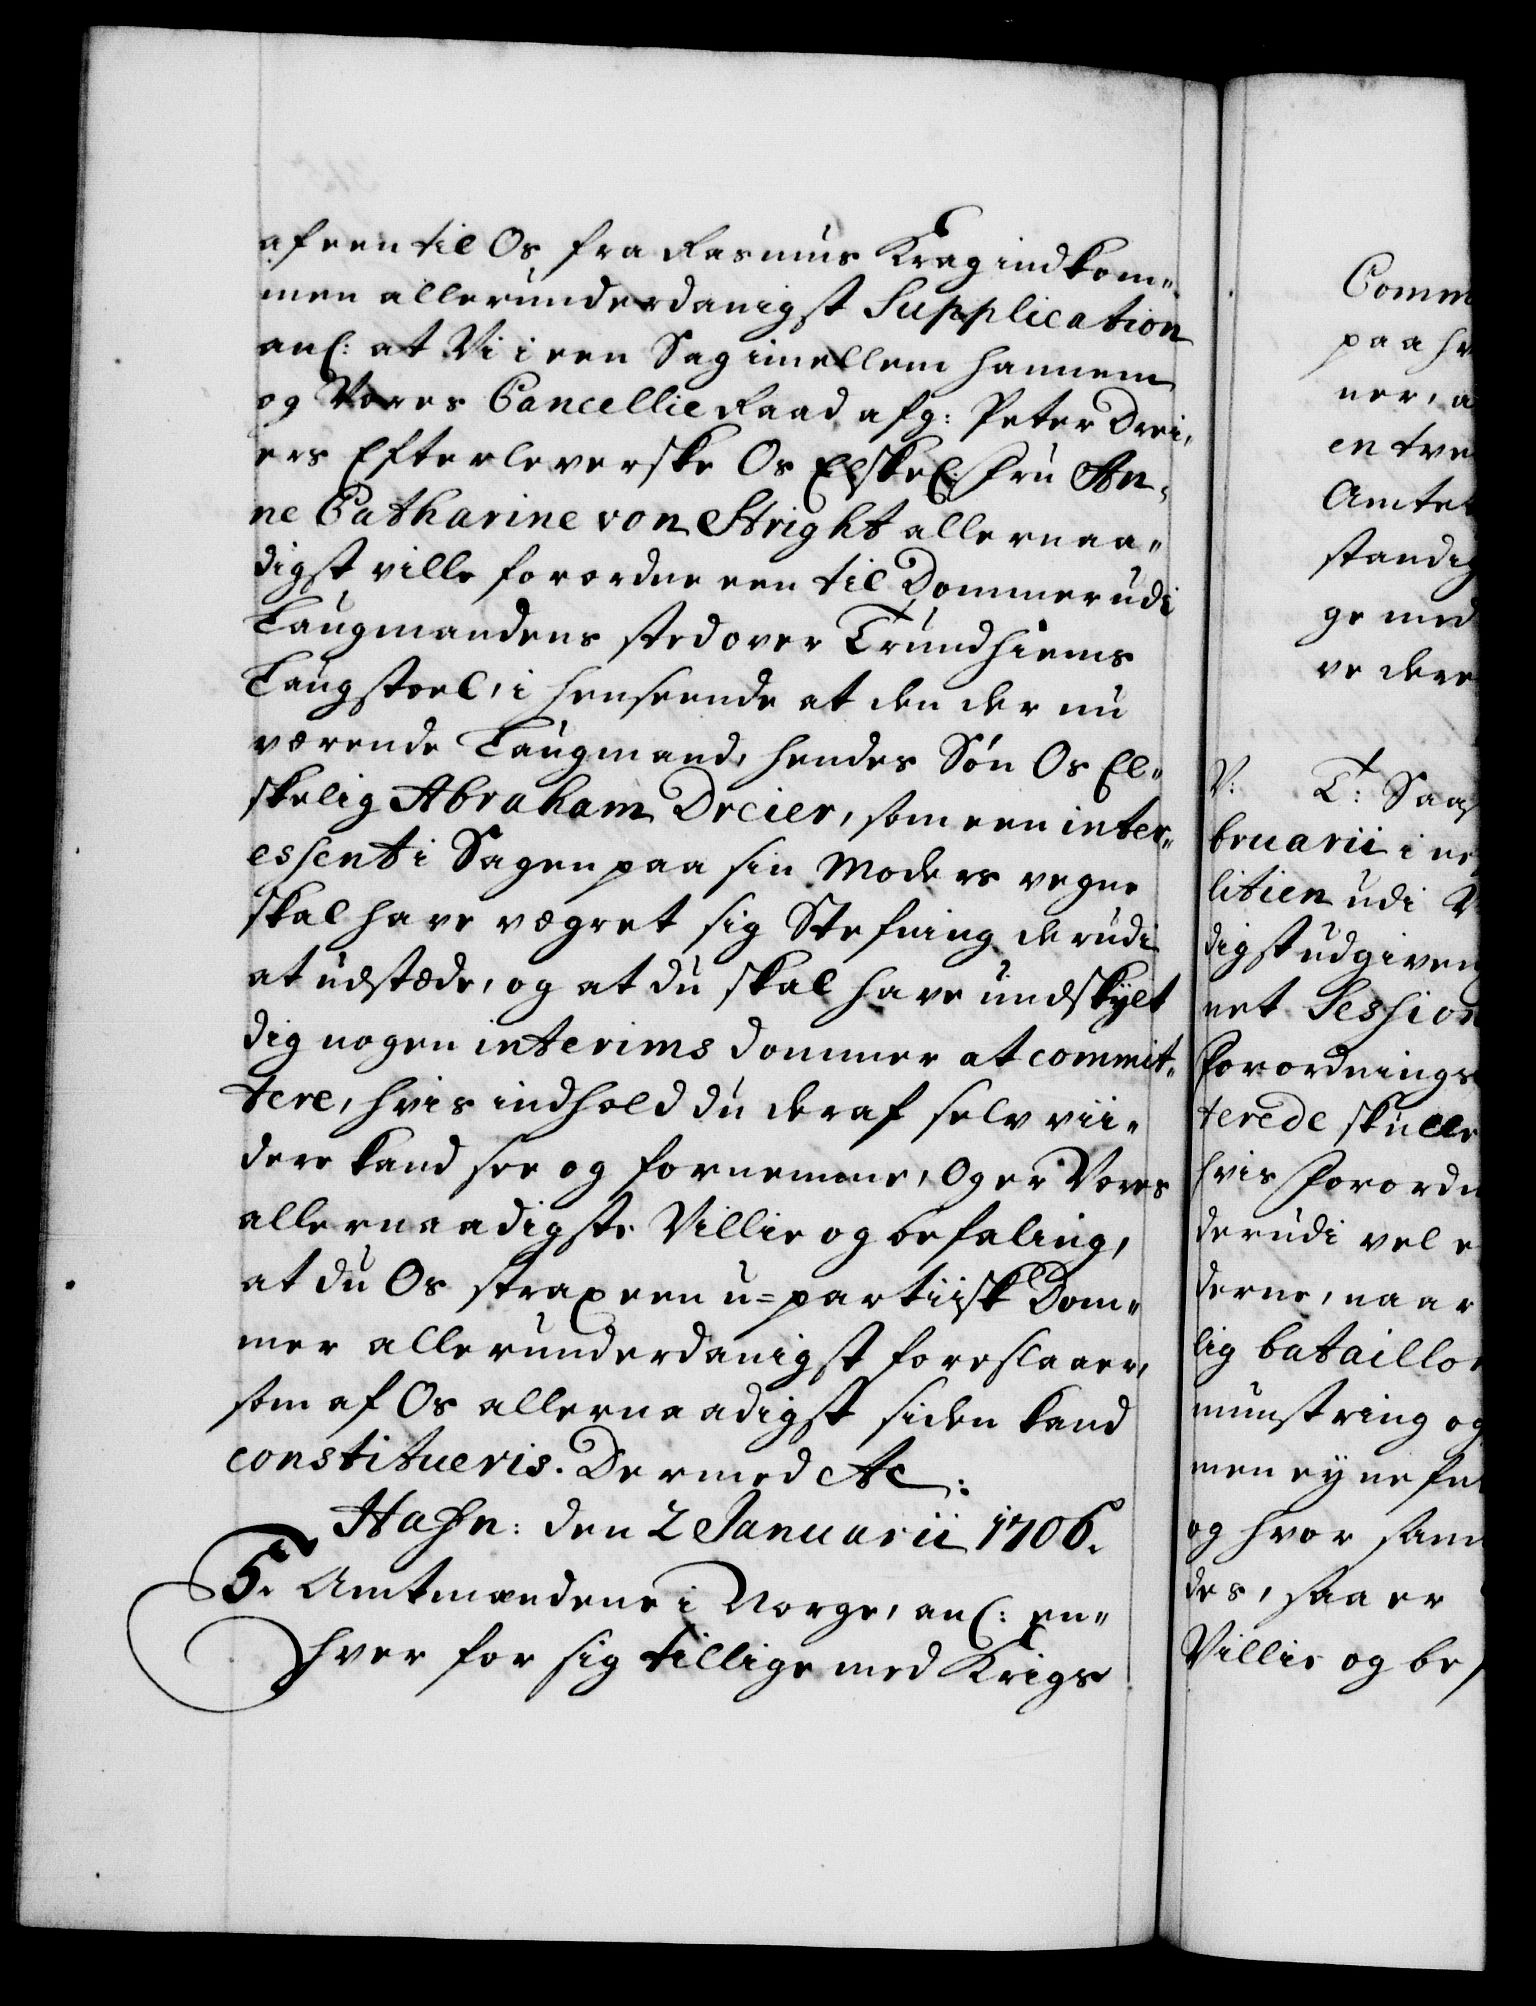 af een til Os fra Rasmus Krag indkom„
men allerunderdanigst Supplication
anl: at Vi i een Sag imellem hannem
og Vores Cancellie Raad afg: Peter Drei„
ers Efterleverske Os Elskel: Fru An„
ne Catharine von Stright allernaa„
digst ville forordne een til Dommer udi
Laugmandens sted over Trundhiems
Laugstoel, i henseende at den der nu
værende Laugmand, hendes Søn Os El„
skelig Abraham Dreier, som een inter„
essent i Sagen paa sin Moders vegne
skal have vægret sig Stefning derudi
at udstæde, og at du skal have undskylt
dig nogen interims dommer at commit„
tere, hvis indhold du deraf selv vii„
dere kand see og fornemme, Og er Vores
allernaadigste Villie og befaling,
at du Os strax een u=partiisk Dom„
mer allerunderdanigst foreslaaer,
som af Os allernaadigst siden kand
constitueris. Dermed etc:
Hafn: den 2 Januarii 1706.
5. Amtmændene i Norge, anl: en„
hver for sig tillige med Krigs
Comm
paa hv
ner, a
en tve
Amte
standig
ge med
ve dere
V: T: Saas
bruarii i ne
litien udi V
digst udgiven
net Session
Forordnings
terede skulle
hvis Forordn
derudi vel e
derne, naar
lig bataillon
munstring og
men ey
og hvor sam
des, saa er
Villie og be